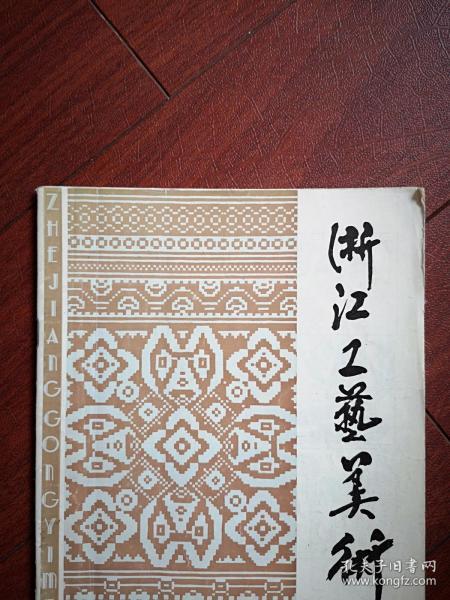 浙江工藝美術
ZHEJIANG GONGYIM
孔夫子旧书网
www.kongfz.com